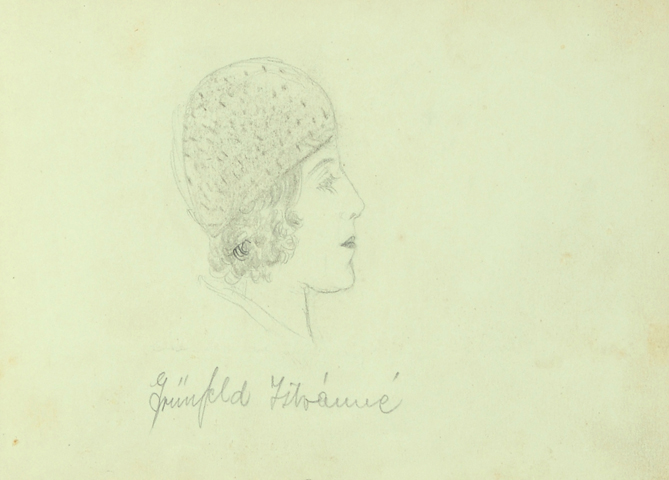 Grünfeld Istvánné